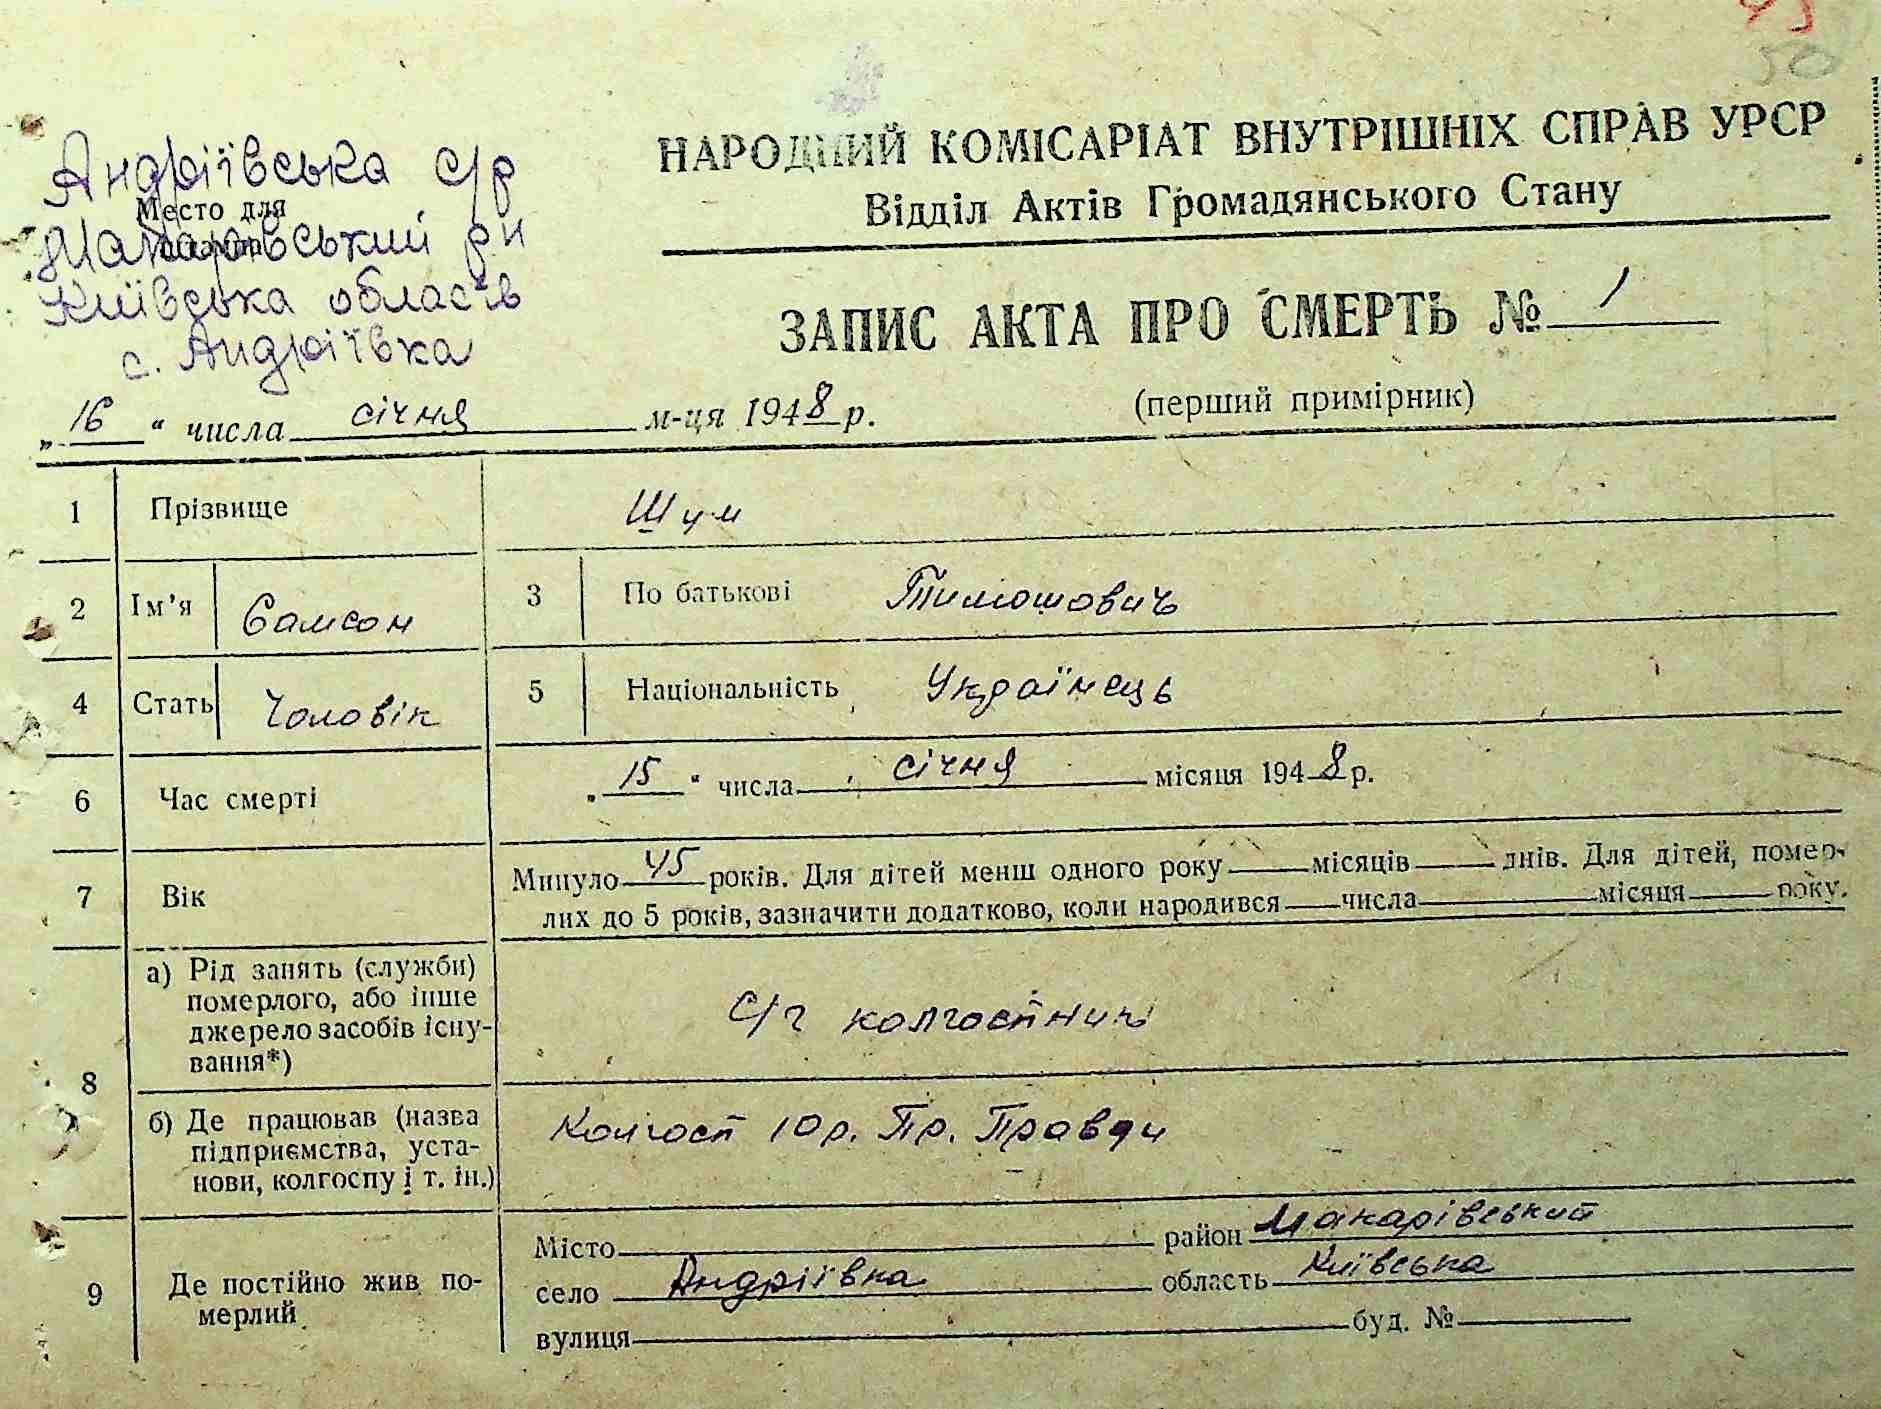 50
НАРОДНИЙ КОМІСАРІАТ ВНУТРІШНІХ СПРАВ УРСР
Відділ Актів Громадянського Стану
Андріївська с/р
Место для
Макарівський рн
Київська область
с. Андріївка
ЗАПИС АКТА ПРО СМЕРТЬ № 1
„16“ числа січня м-ця 1948 р.
(перший примірник)
1 Прізвище Шум
2 Ім’я Самсон 3 По батькові Тимошович
4 Стать Чоловік 5 Національність Українець
6 Час смерті „15“ числа січня місяця 1948 р.
7 Вік Минуло 45 років. Для дітей менш одного року місяців днів. Для дітей, помер-
лих до 5 років, зазначити додатково, коли народився числа місяця року.
8 а) Рід занять (служби)
померлого, або інше
джерело засобів існу-
вання*)
С/г колгоспник
б) Де працював (назва
підприємства, уста-
нови, колгоспу і т. ін.)
Колгосп 10 р. Пр. Правди
9 Де постійно жив по-
мерлий
Місто район Макарівський
село Андріївка область Київська
вулиця буд. №